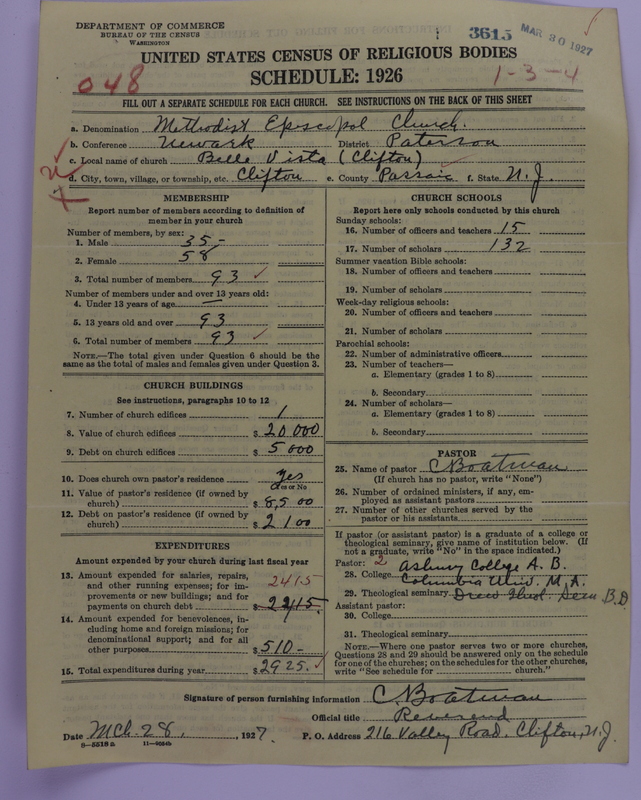 DEPARTMENT OF COMMERCE
BUREAU OF THE CENSUS
WASHINGTON
3615
MAR 30 1927
UNITED STATES CENSUS OF RELIGIOUS BODIES
SCHEDULE: 1926
048
1-3-4
FILL OUT A SEPARATE SCHEDULE FOR EACH CHURCH. SEE INSTRUCTIONS ON THE BACK OF THIS SHEET
a. Denomination Methodist Episcopal Church.
b. Conference Newark District Paterson
c. Local name of church Belle Vista (Clifton)
d. City, town, village, or township, etc. Clifton e. County Passaic f. State N.J.
MEMBERSHIP
Report number of members according to definition of
member in your church
Number of members, by sex:
1. Male 35-
2. Female 58
3. Total number of members 93 ✓
Number of members under and over 13 years old:
4. Under 13 years of age —
5. 13 years old and over 93
6. Total number of members 93 ✓
NOTE.—The total given under Question 6 should be the
same as the total of males and females given under Question 3.
CHURCH BUILDINGS
See instructions, paragraphs 10 to 12
7. Number of church edifices 1
8. Value of church edifices $ 20000
9. Debt on church edifices $ 5000
10. Does church own pastor's residence yes
(Yes or No)
11. Value of pastor's residence (if owned by
church) $ 8,500
12. Debt on pastor's residence (if owned by
church) $ 2100
EXPENDITURES
Amount expended by your church during last fiscal year
13. Amount expended for salaries, repairs,
and other running expenses; for im-
provements or new buildings; and for
payments on church debt 2415
$ 2215.
14. Amount expended for benevolences, in-
cluding home and foreign missions; for
denominational support; and for all
other purposes $ 510-
15. Total expenditures during year $ 2925. ✓
CHURCH SCHOOLS
Report here only schools conducted by this church
Sunday schools:
16. Number of officers and teachers 15
17. Number of scholars 132
Summer vacation Bible schools:
18. Number of officers and teachers
19. Number of scholars
Week-day religious schools:
20. Number of officers and teachers
21. Number of scholars
Parochial schools:
22. Number of administrative officers
23. Number of teachers—
a. Elementary (grades 1 to 8)
b. Secondary
24. Number of scholars—
a. Elementary (grades 1 to 8)
b. Secondary
PASTOR
25. Name of pastor C Boatman
(If church has no pastor, write "None")
26. Number of ordained ministers, if any, em-
ployed as assistant pastors
27. Number of other churches served by the
pastor or his assistants
If pastor (or assistant pastor) is a graduate of a college or
theological seminary, give name of institution below. (If
not a graduate, write "No" in the space indicated.)
Pastor: 2 Asbury College A.B.
28. College Columbia Univ. M.A.
29. Theological seminary Drew Theol. Sem B.D.
Assistant pastor:
30. College
31. Theological seminary
NOTE.—Where one pastor serves two or more churches,
Questions 28 and 29 should be answered only on the schedule
for one of the churches; on the schedules for the other churches,
write "See schedule for church."
Signature of person furnishing information C. Boatman
Official title Reverend
Date Mch. 28, 1927. P. O. Address 216 Valley Road, Clifton, N.J.